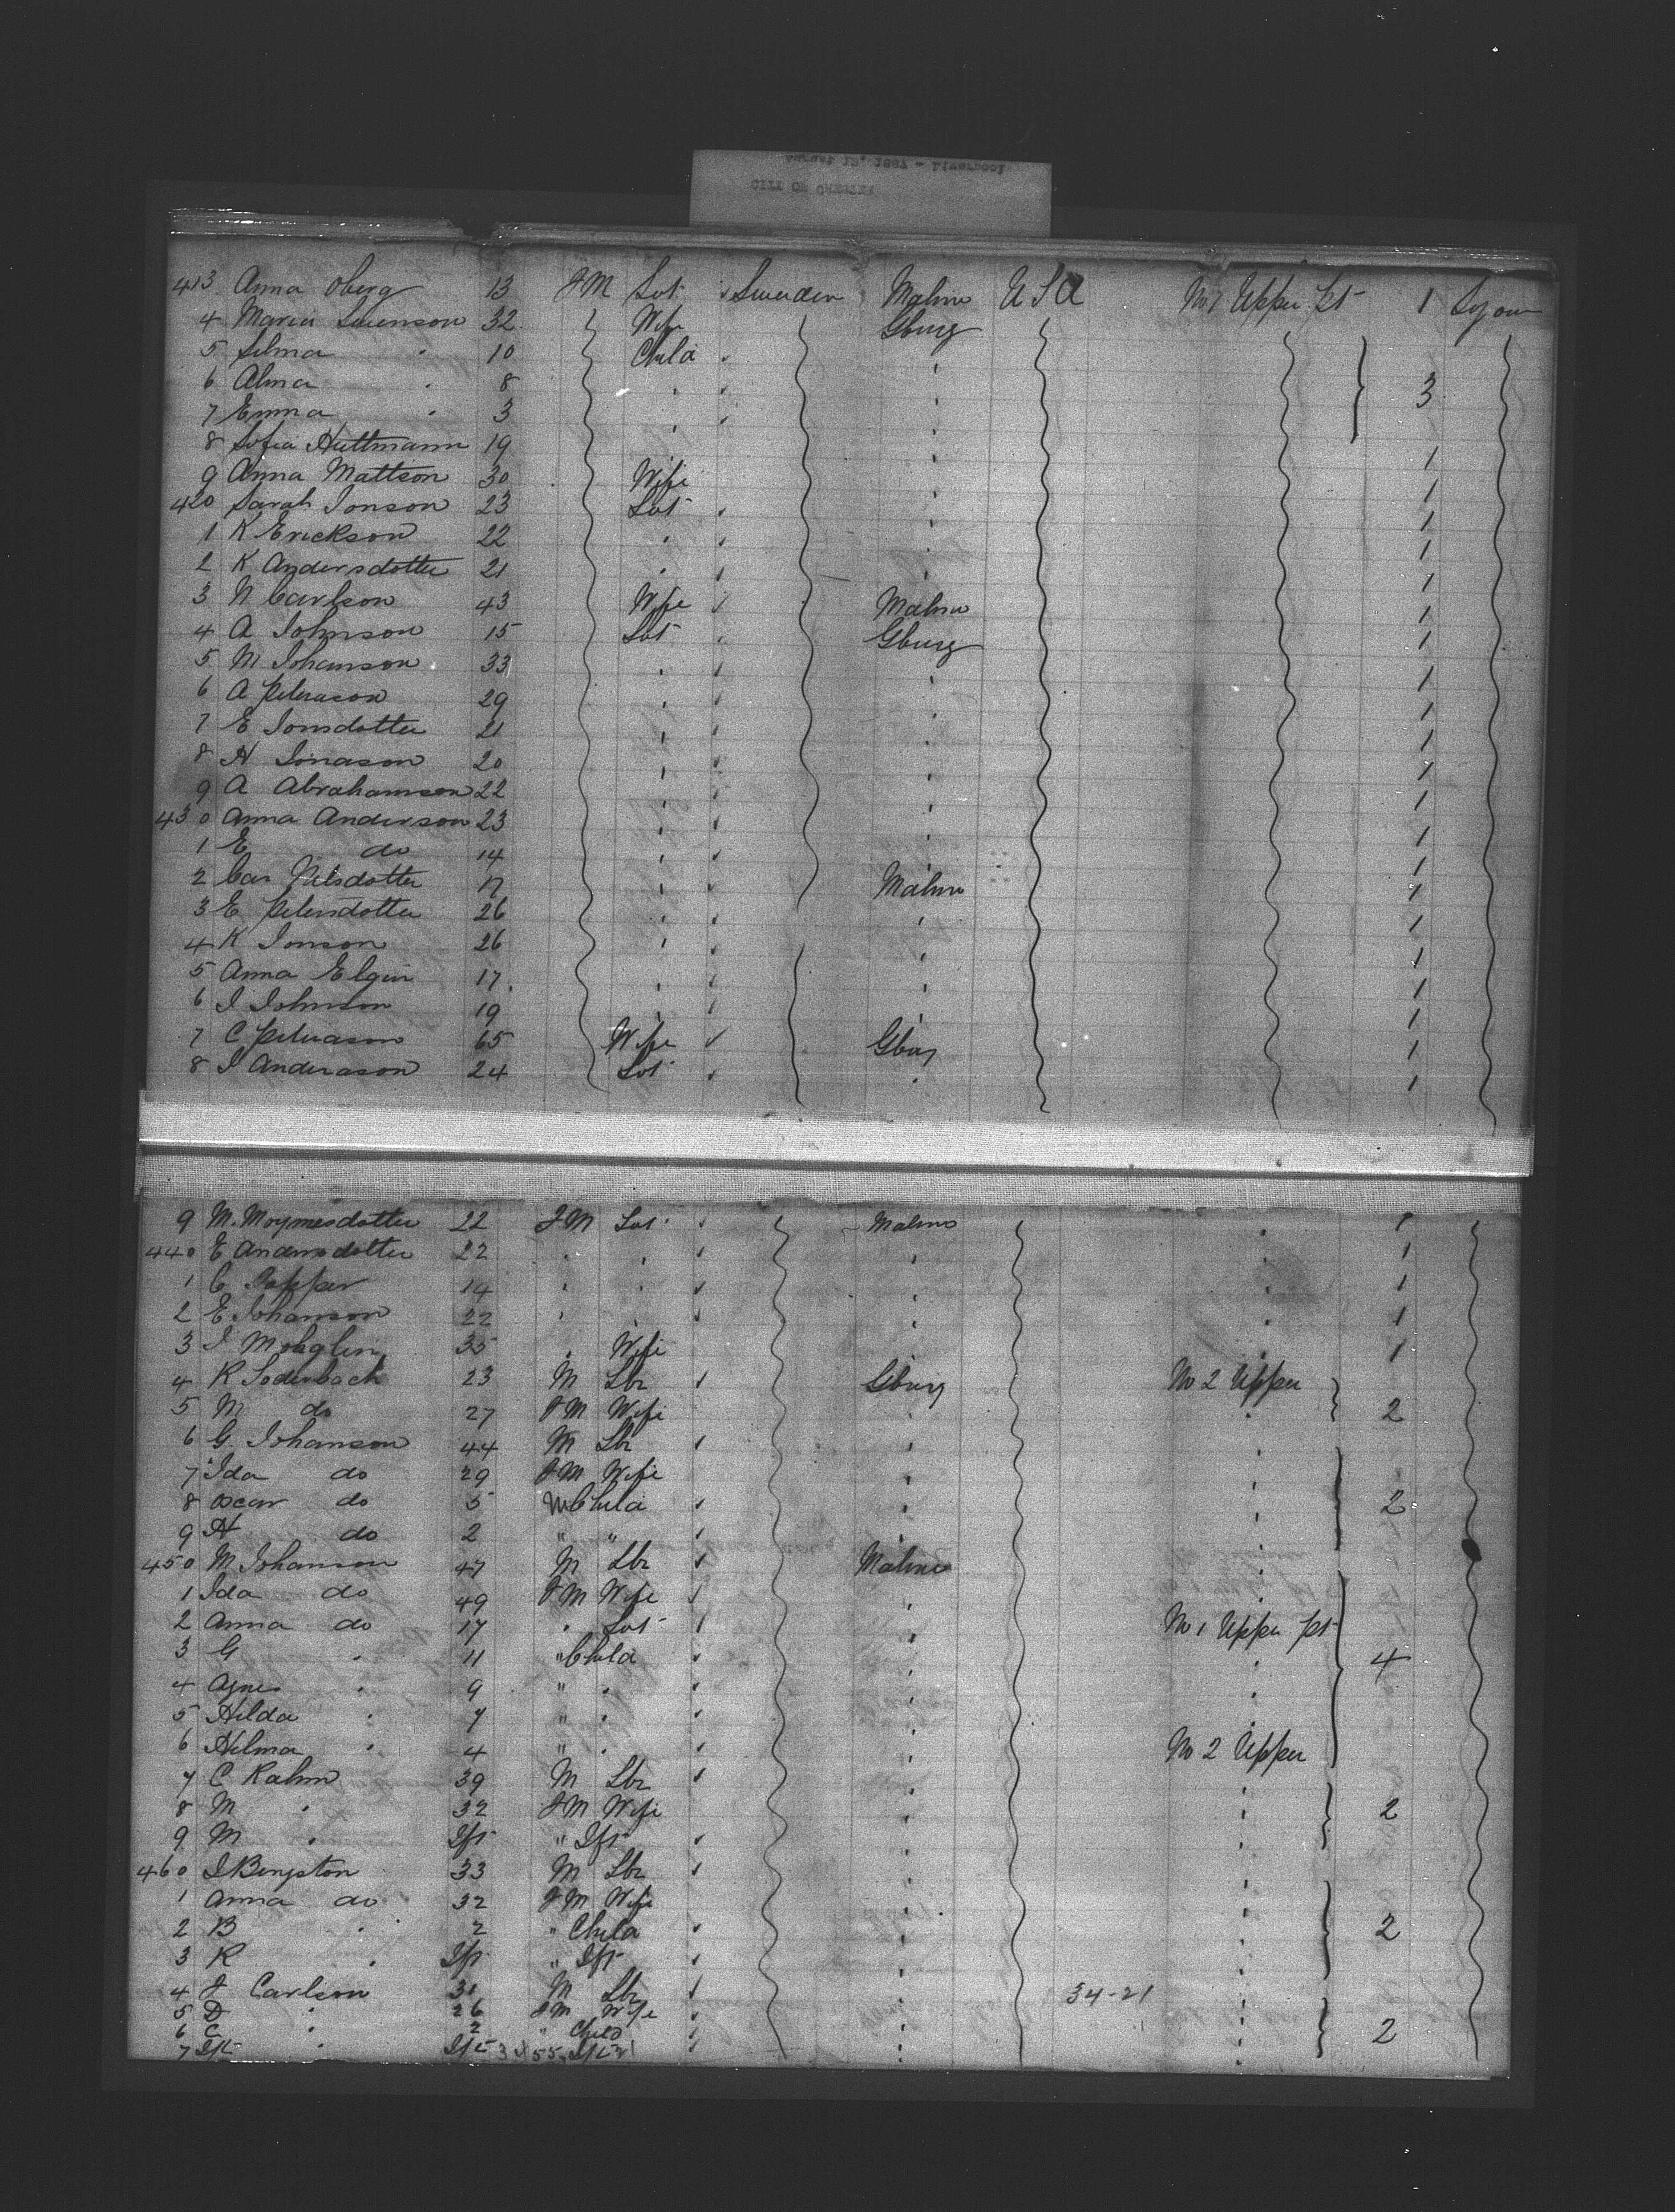 CITY OF CHESTER
August 15, 1887 - Liverpool
413 Anna Oberg 13 FM Svt Sweeden Malmo U S A No 1 Upper pt 1 Sojour
4 Maria Swenson 32 Wife Gburg
5 Selma " 10 Child
6 Alma " 8 3
7 Emma " 3
8 Sofia Huttmann 19 1
9 Anna Mattson 30 Wife 1
420 Sarah Jonson 23 Svt 1
1 K Erickson 22 1
2 K Andersdotter 21 1
3 N Carlson 43 Wife Malmo 1
4 A Johnson 15 Svt Gburg 1
5 M Johanson 33 1
6 A Peterason 29 1
7 E Jonsdotter 21 1
8 H Jonason 20 1
9 A Abrahamson 22 1
430 Anna Anderson 23 1
1 E do 14 1
2 Car Nilsdotter 17 Malmo 1
3 E Petersdotter 26 1
4 K Jonson 26 1
5 Anna Elgin 17 1
6 I Johnson 19 1
7 C Peterason 65 Wife Gburg 1
8 I Anderason 24 Svt 1
9 M. Moynesdotter 22 FM Svt Malmo 1
440 E Andersdotter 22 1
1 C Popper 14 1
2 E Johanson 22 1
3 I 35 Wife 1
4 K Soderback 23 M Lbr Gburg No 2 Upper
5 M do 27 FM Wife 2
6 G. Johanson 44 M Lbr
7 Ida do 29 FM Wife
8 Oscar do 5 M Child 2
9 H do 2 " "
450 M Johanson 47 M Lbr Malmo
1 Ida do 49 FM Wife
2 Anna do 17 " Svt No 1 Upper pt
3 G " 11 " Child 4
4 Agnes " 9 " "
5 Hilda " 7 " "
6 Hilma " 4 " " No 2 Upper
7 C Rahm 39 M Lbr
8 M " 32 FM Wife 2
9 M " Ift " Ift
460 I Bengston 33 M Lbr
1 Anna do 32 FM Wife
2 B " 2 " Child 2
3 K " Ift " Ift
4 J Carlson 31 M Lbr 34-21
5 D " 26 FM Wife
6 C " 2 " Child 2
7 Ift " Ift Ift